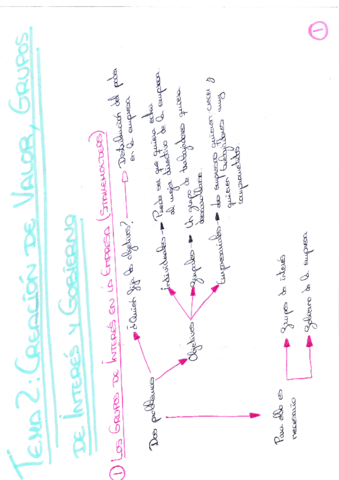 TEMA 2: CREACIÓN DE VALOR, GRUPOS
DE INTERÉS Y GOBIERNO
① LOS GRUPOS DE INTERÉS EN LA EMPRESA (STAKEHOLDERS)
Dos problemas
¿Quién fija los objetivos?
Distribución del poder
en la empresa
Objetivos
individuales
Puede ser que quiera estar
el mejor directivo de la empresa
grupales
Un grupo de trabajadores quiere
desarrollarse
Empresariales
las empresas quieren crecer y
quieren trabajadores muy
comprometidos
Para ello es
necesario
grupos de interés
gobierno de la empresa
1